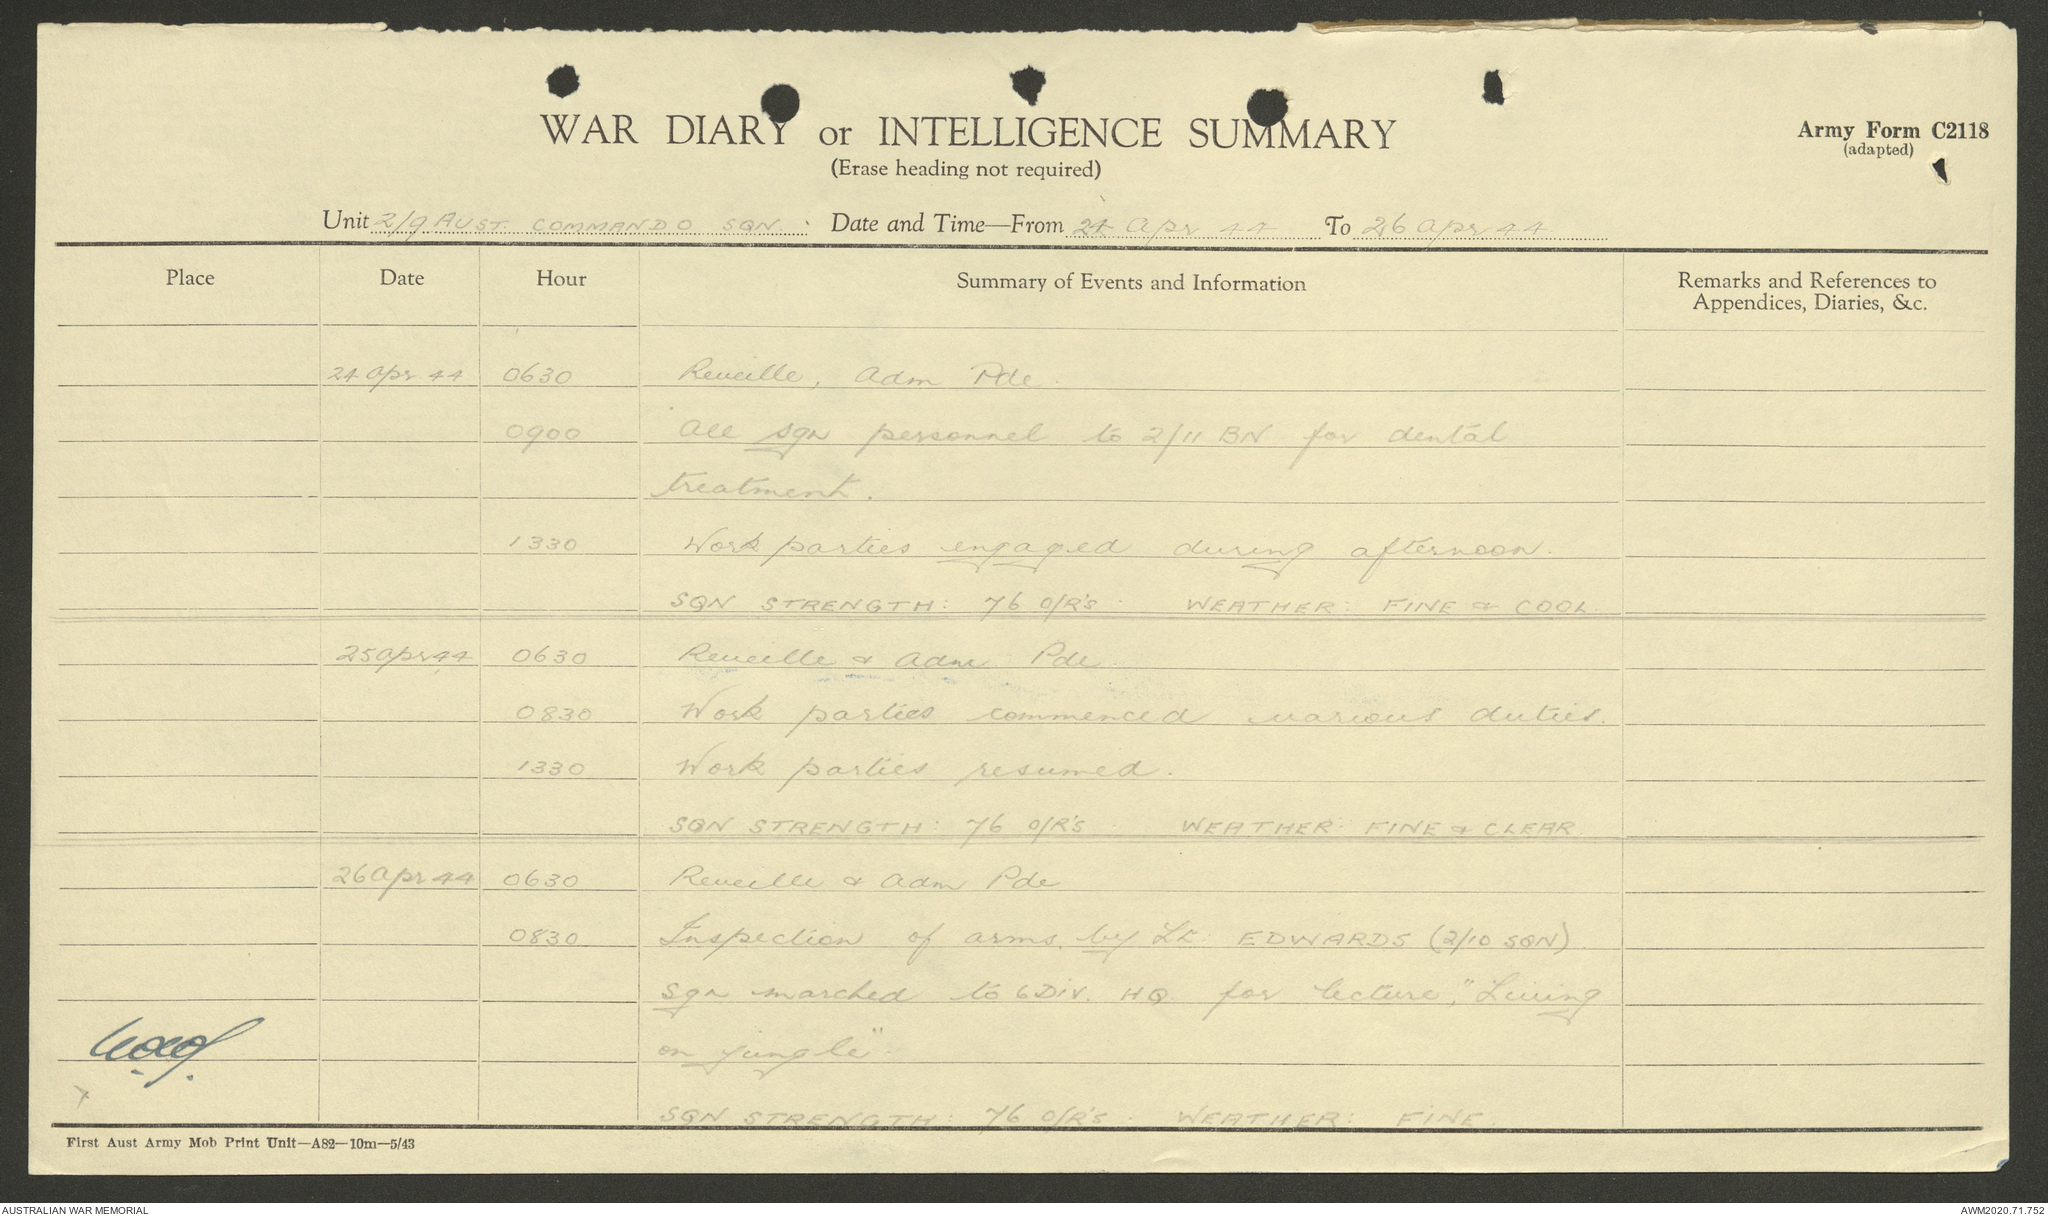 WAR DIARY or INTELLIGENCE SUMMARY
(Erase heading not required)
Army Form C2118
(adapted)
Unit 2/9 AUST. COMMANDO SQN. Date and Time—From 24 Apr 44 To 26 Apr 44
Place Date Hour Summary of Events and Information Remarks and References to
Appendices, Diaries, &c.
24 Apr 44 0630 Reveille, Adm Pde.
0900 All sqn personnel to 2/11 BN for dental
treatment.
1330 Work parties engaged during afternoon.
SQN STRENGTH: 76 O/R's WEATHER: FINE & COOL
25 Apr 44 0630 Reveille & Adm Pde
0830 Work parties commenced various duties.
1330 Work parties resumed.
SQN STRENGTH: 76 O/R's WEATHER: FINE & CLEAR
26 Apr 44 0630 Reveille & Adm Pde
0830 Inspection of arms by Lt. EDWARDS (2/10 SQN).
Sqn marched to 6 Div. HQ for lecture, "Living
on jungle"
SQN STRENGTH: 76 O/R's. WEATHER: FINE.
First Aust Army Mob Print Unit—A82—10m—5/43
AUSTRALIAN WAR MEMORIAL
AWM2020.71.752